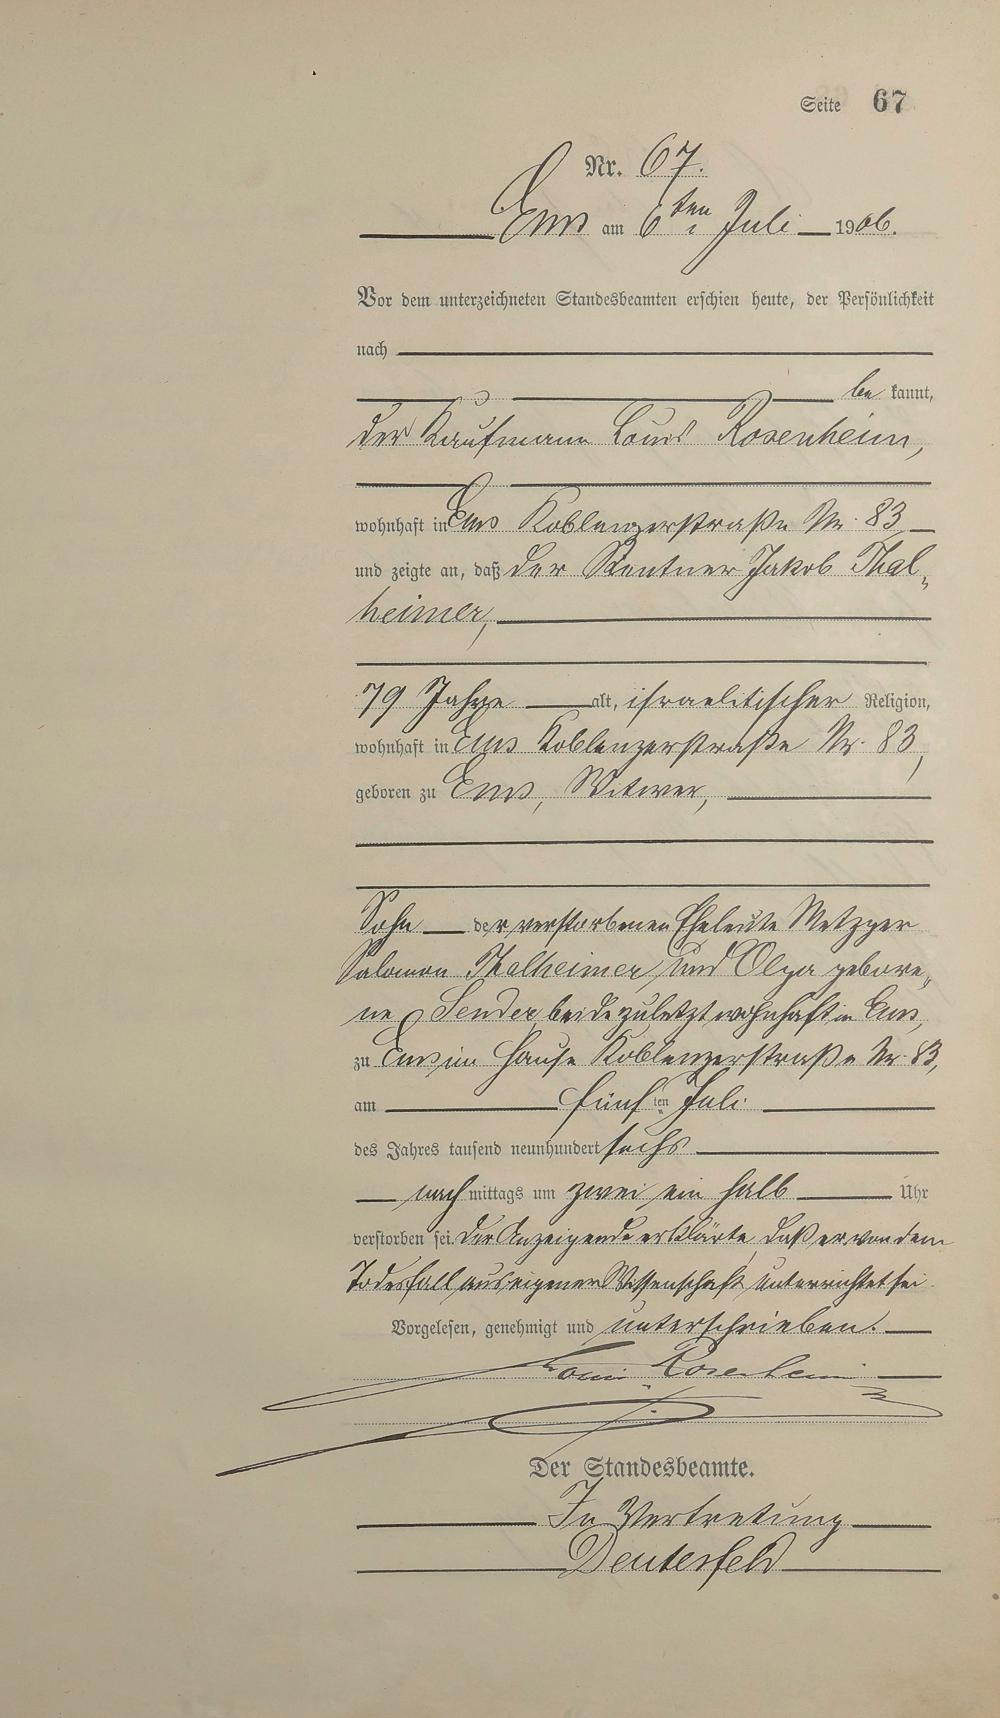 Seite 67
Nr. 67.
Ems am 6ten Juli 1906.
Vor dem unterzeichneten Standesbeamten erschien heute, der Persönlichkeit
nach
be kannt,
der Kaufmann Louis Rosenheim,
wohnhaft in Ems Koblenzerstraße Nr. 83
und zeigte an, daß der Rentner Jakob Thal-
heimer,
79 Jahre alt, israelitischer Religion,
wohnhaft in Ems Koblenzerstraße Nr. 83,
geboren zu Ems, Witwer,
Sohn der verstorbenen Eheleute Metzger
Salomon Thalheimer und Olga gebore-
ne Sender beide zuletzt wohnhaft in Ems,
zu Ems im Hause Koblenzerstraße Nr. 83,
am fünften Juli
des Jahres tausend neunhundert sechs
nach mittags um zwei ein halb Uhr
verstorben sei. Der Anzeigende erklärte, daß er von dem
Todesfall aus eigener Wissenschaft unterrichtet sei.
Vorgelesen, genehmigt und unterschrieben.
Louis Rosenheim
Der Standesbeamte.
In Vertretung
Deutesfeld